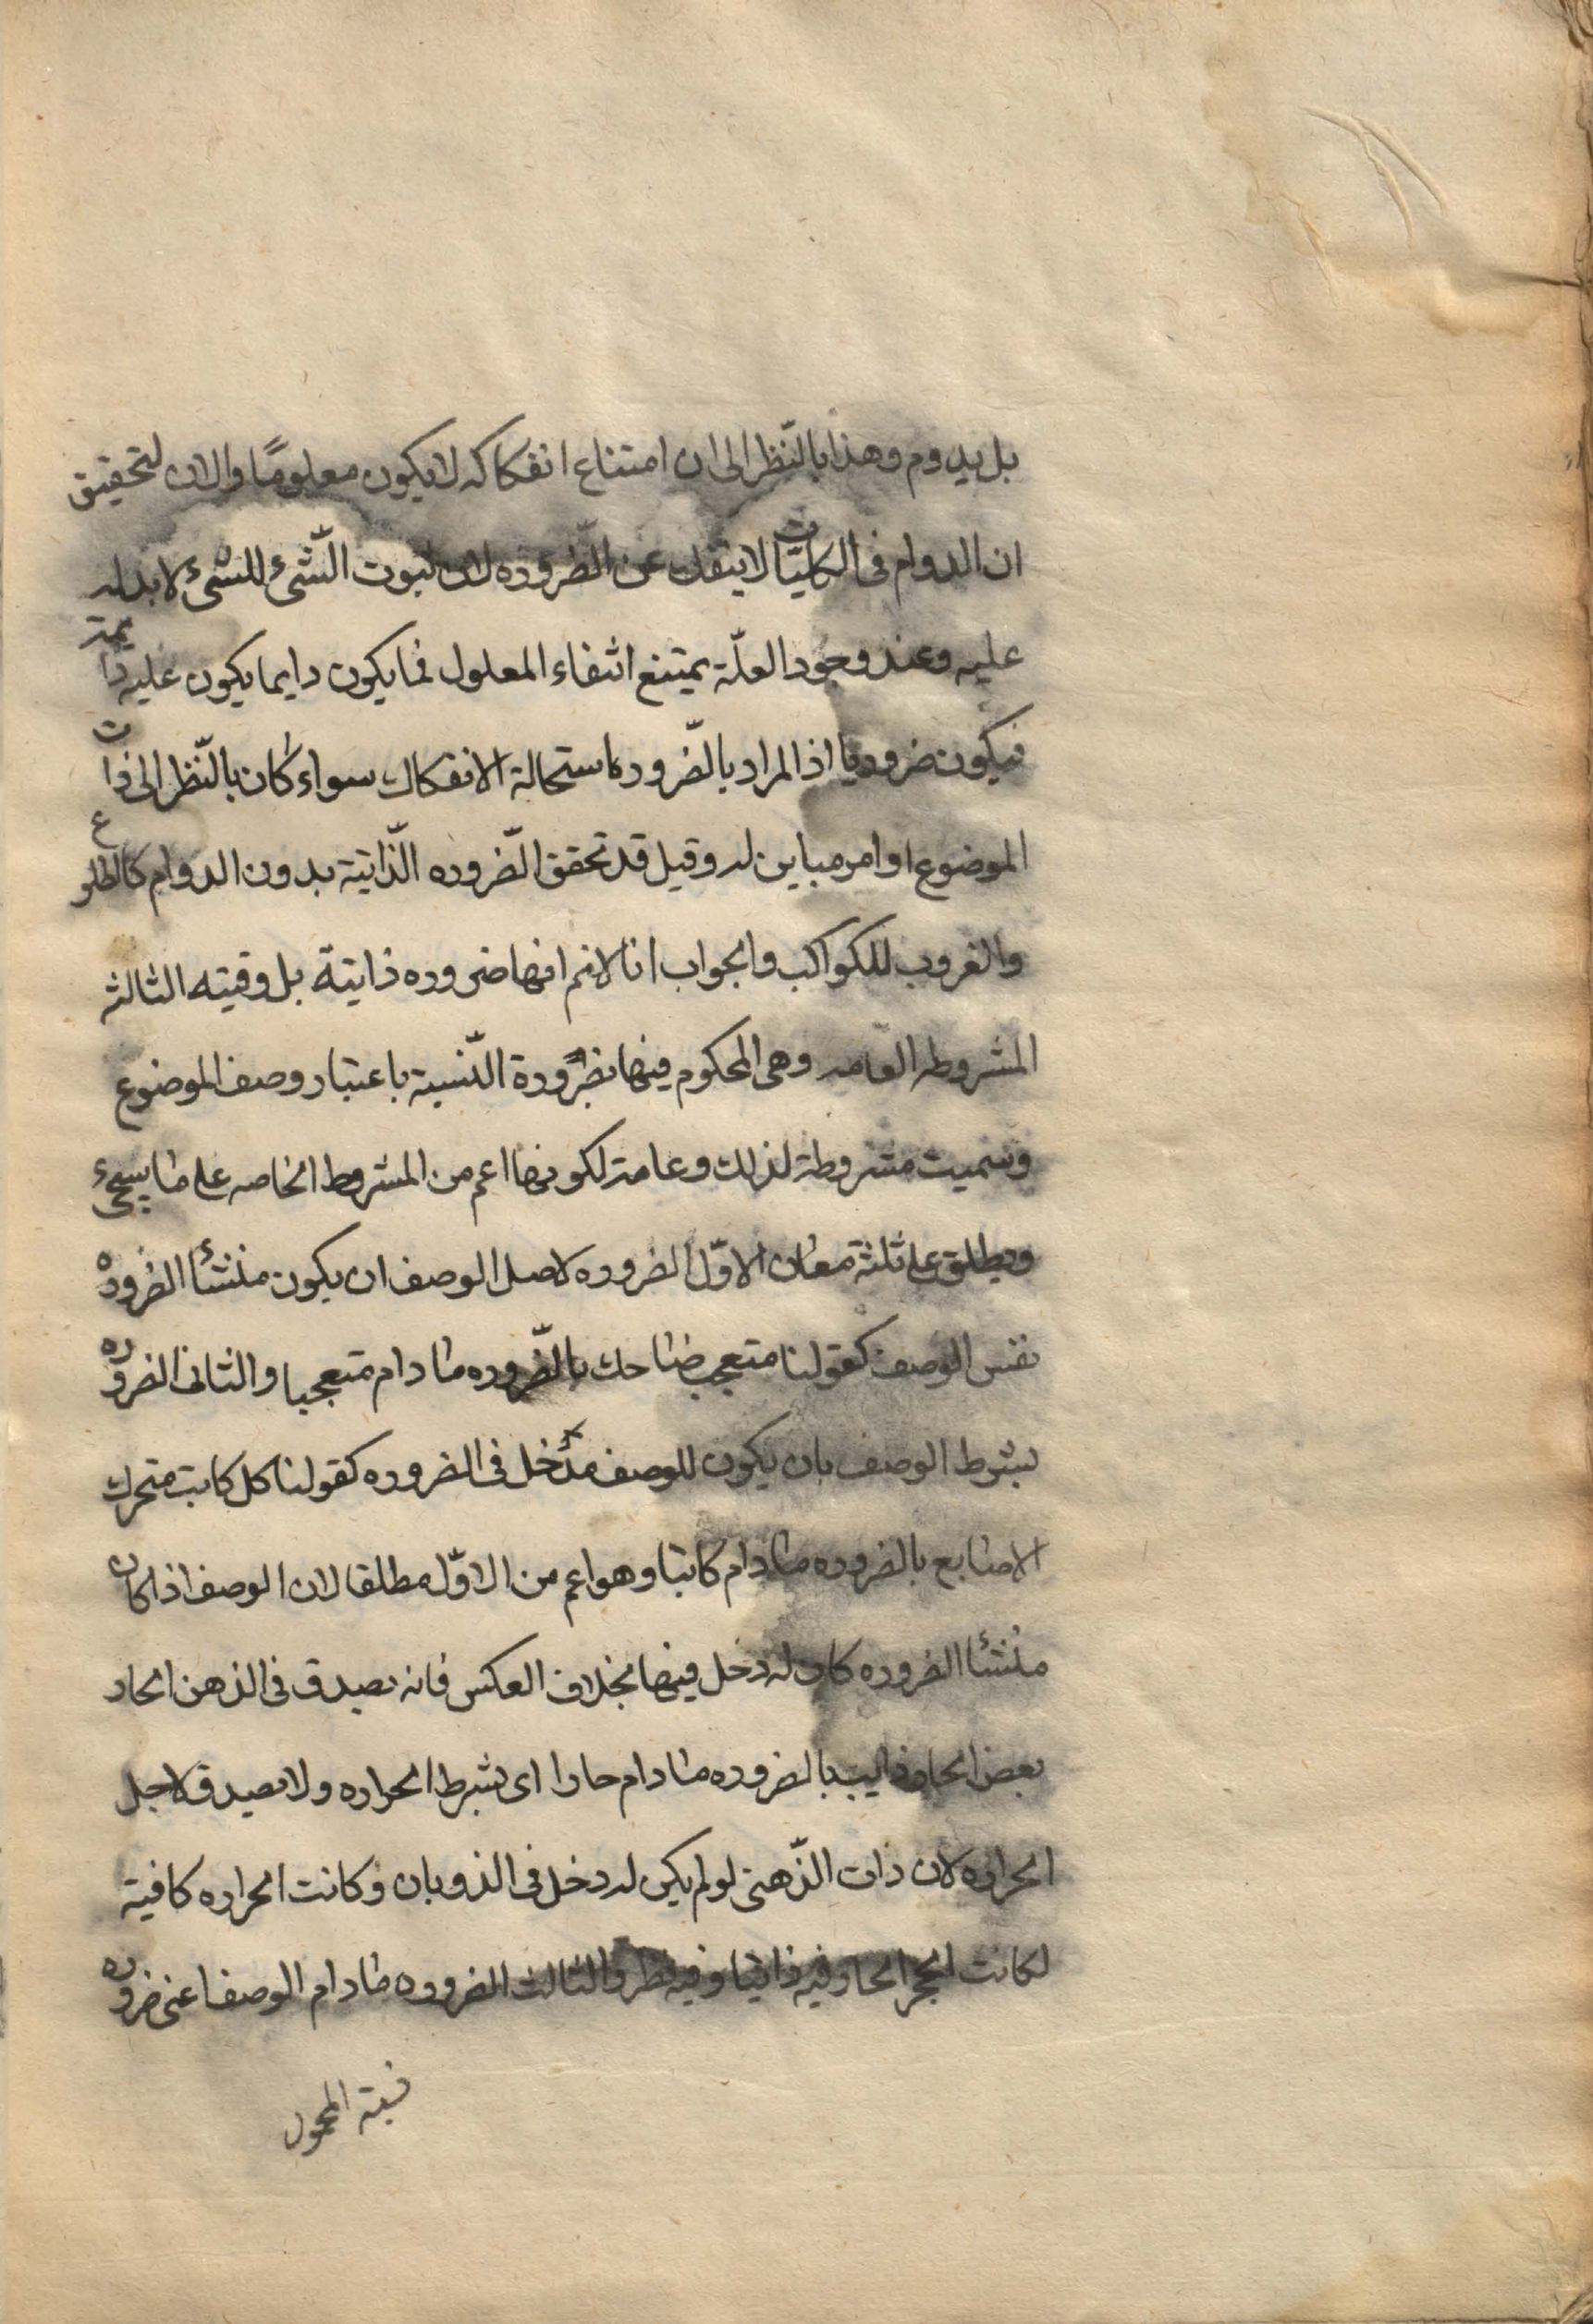 بل يدوم وهذا بالنّظر الى ان امتناع انفكاكه لا يكون معلومًا والا ان لتحقيق
ان الدوام فى الكليّات لا ينفك عن الضّروره لان ثبوت الشّئ للشئ لا بد له
عليه وعند وجود العلّة يمتنع انتفاء المعلول فما يكون دايما يكون عليه دايمة
فيكون ضروريا اذ المراد بالضّروره استحالة الانفكاك سواء كان بالنّظر الى ذات
الموضوع او امر مباين له وقيل قد تحقق الضّروره الذّاتية بدون الدوام كالطلوع
والغروب للكواكب والجواب انا لانم انها ضروره ذاتية بل وقتيه الثالثه
المشروطه العامه وهى المحكوم فيها بضرورة النّسبة باعتبار وصف الموضوع
وسميت مشروطة لذلك وعامة لكونها اعم من المشروط الخاصه على ما يسجئ
ويطلق على ثلثة معان الاوّل الضروره لاصل الوصف ان يكون منشأ الضروره
نفس الوصف كقولنا متعجب ضاحك بالضّروره ما دام متعجبا والثانى الضروره
بشرط الوصف بان يكون للوصف مدخل فى الضروره كقولنا كل كاتب متحرك
الاصابع بالضروره ما دام كاتبا وهو اعم من الاوّل مطلقا لان الوصف اذا كان
منشأ الضروره كان له دخل فيها بخلاف العكس فانه يصدق فى الذهن الحار
بعض الحار ذايب بالضروره ما دام حارا اى بشرط الحراره ولا يصدق لاجل
الحراره لان ذات الذّهن لو لم يكن له دخل فى الذوبان وكانت الحراره كافية
لكانت الحجر الحار فيه ذايبا وفيه نظر والثالث الضروره ما دام الوصف اعنى ضروره
نسبة المحمول